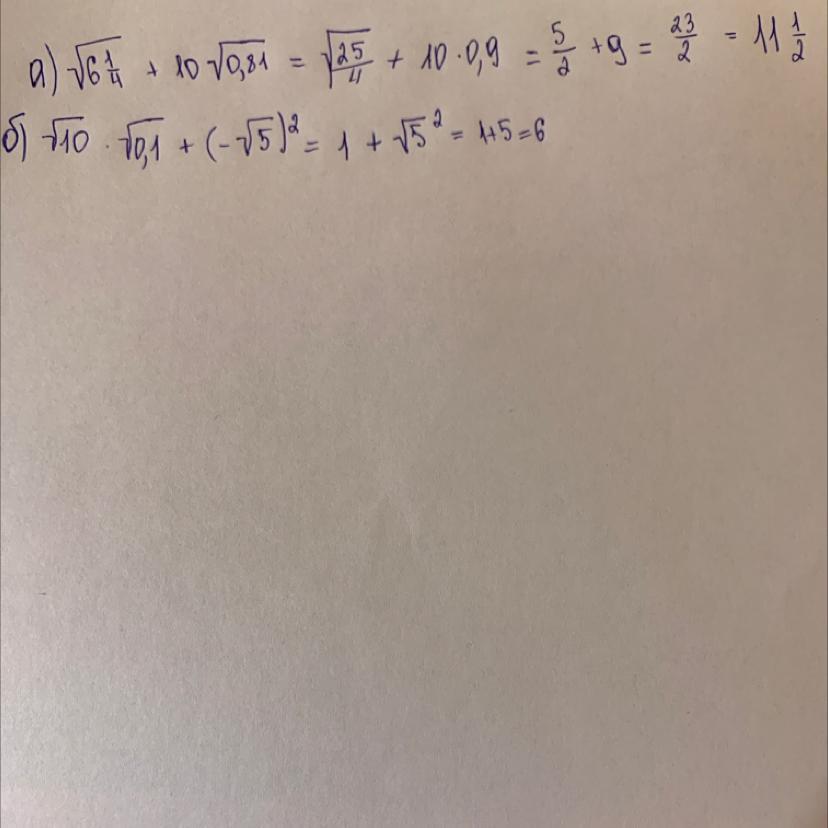 а) √6 1/4 + 10 √0,81 = √25/4 + 10 · 0,9 = 5/2 + 9 = 23/2 = 11 1/2
б) √10 · √0,1 + (-√5)² = 1 + √5² = 1+5=6